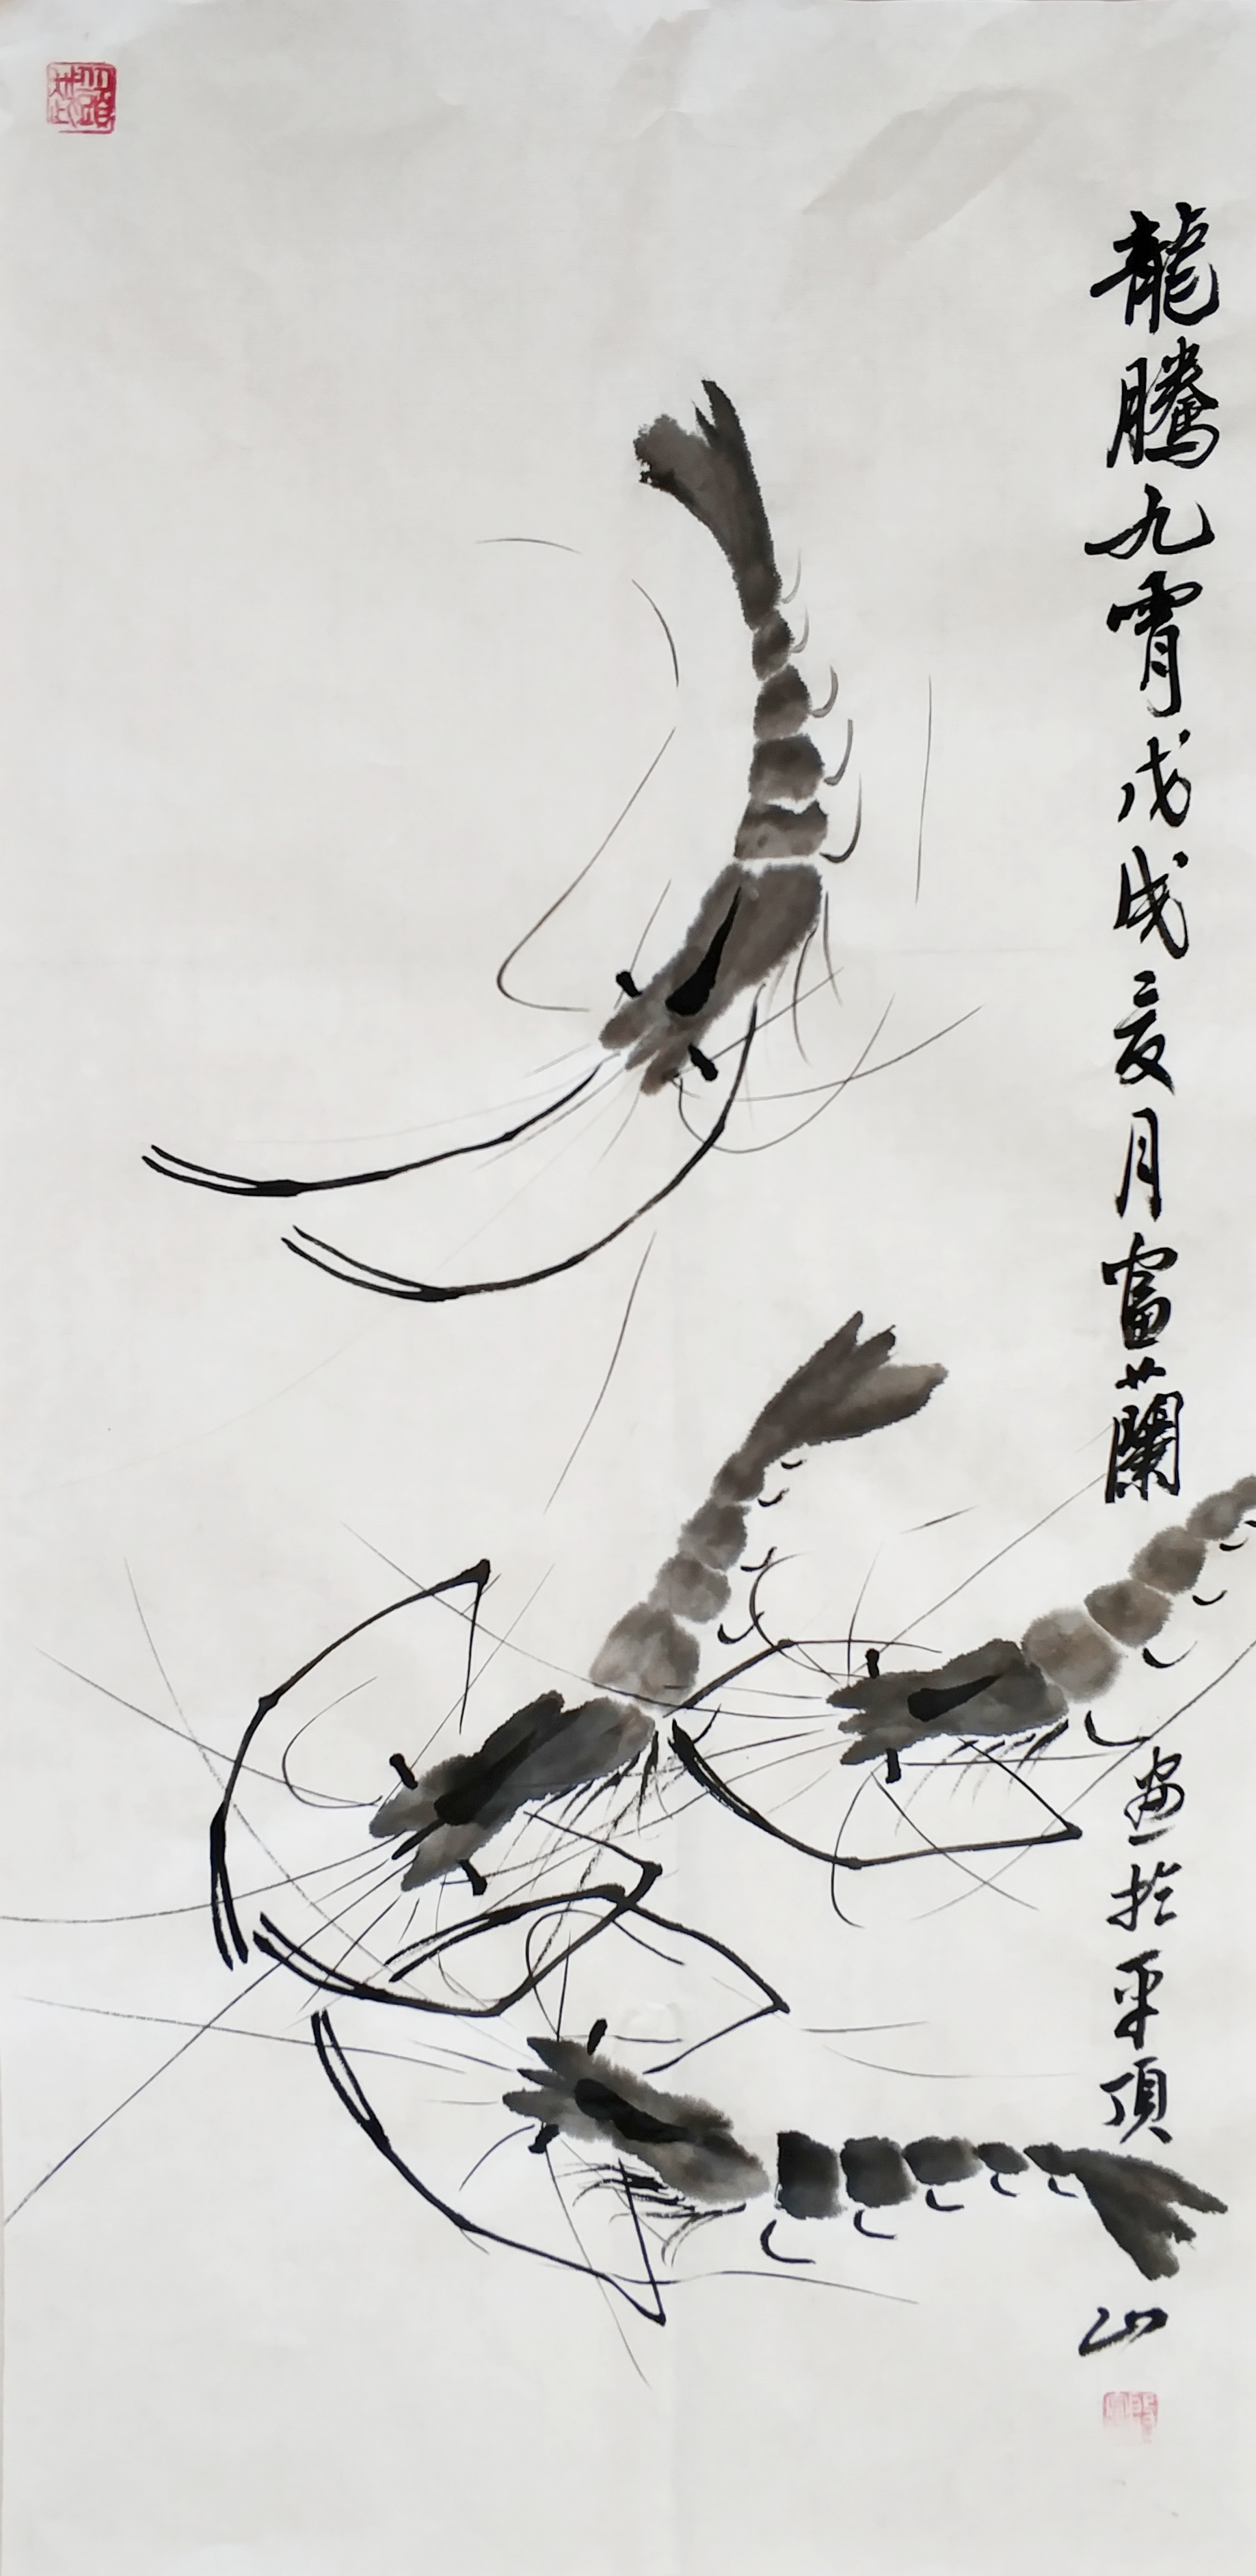 龍騰九霄戊戌亥月富蘭畫於平頂山